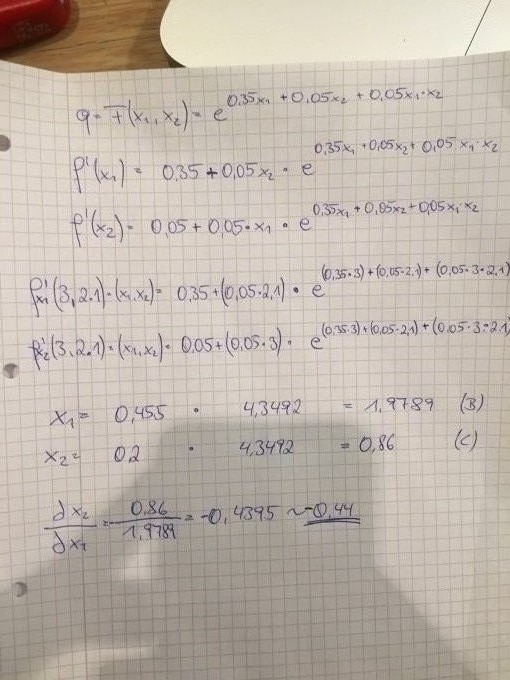 q = F(x₁, x₂) = e^(0,35x₁ + 0,05x₂ + 0,05x₁·x₂)
f'(x₁) = 0,35 + 0,05x₂ · e^(0,35x₁ + 0,05x₂ + 0,05x₁·x₂)
f'(x₂) = 0,05 + 0,05·x₁ · e^(0,35x₁ + 0,05x₂ + 0,05x₁·x₂)
f'x₁(3, 2.1) = (x₁, x₂) = 0,35 + (0,05·2,1) · e^((0,35·3) + (0,05·2,1) + (0,05·3·2,1)
f'x₂(3, 2.1) = (x₁, x₂) = 0,05 + (0,05·3) · e^((0,35·3) + (0,05·2,1) + (0,05·3·2,1)
x₁ = 0,455 · 4,3492 = 1,9789 (B)
x₂ = 0,2 · 4,3492 = 0,86 (C)
∂x₂/∂x₁ = -0,86/1,9789 = -0,4395 ~ -0,44